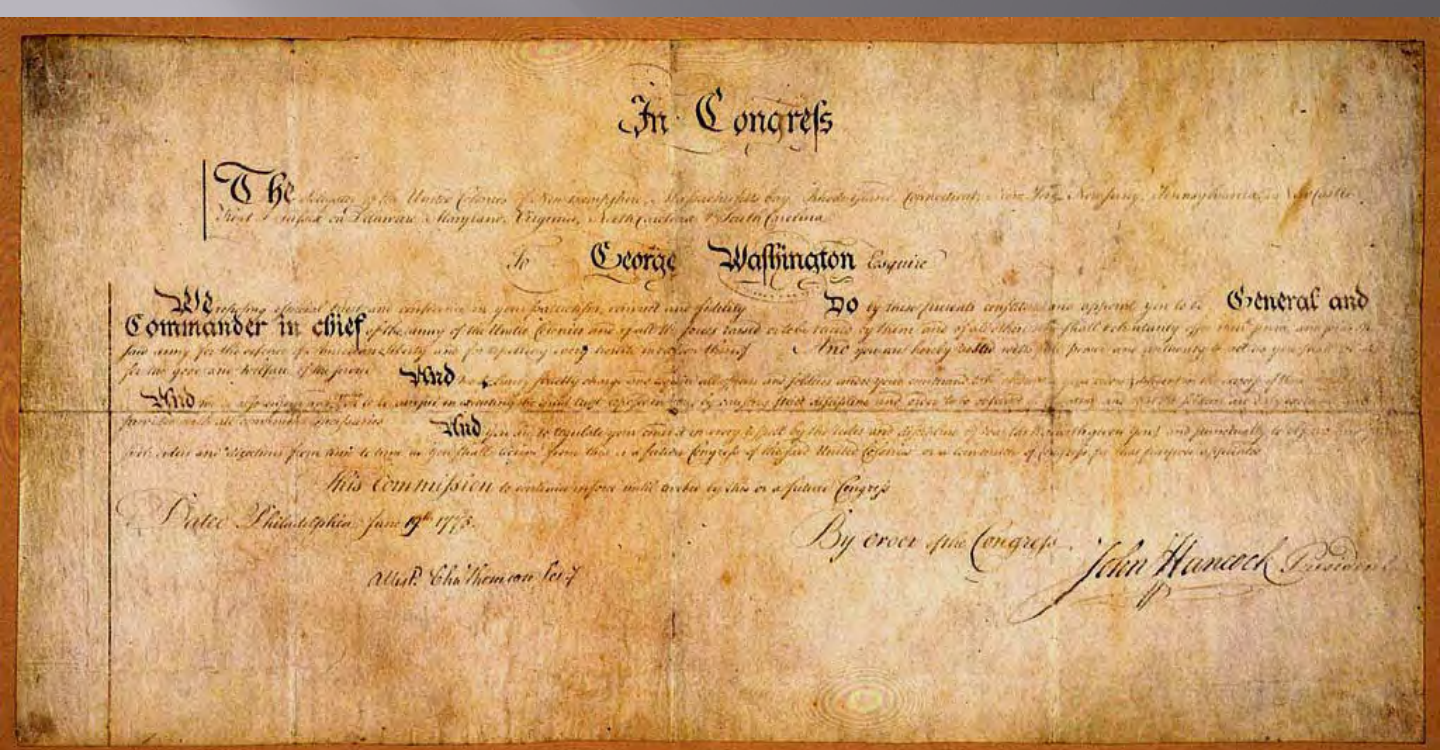 In Congress
The delegates of the United Colonies of New-hampshire, Massachusetts bay, Rhode-island, Connecticut, New-York, New-Jersey, Pennsylvania, Newcastle
Kent & Sussex on Delaware, Maryland, Virginia, North Carolina & South Carolina
To George Washington Esquire
We reposing especial trust and confidence in your patriotism, conduct and fidelity Do by these presents constitute and appoint you to be General and
Commander in chief of the army of the United Colonies and of all the forces raised or to be raised by them and of all others who shall voluntarily offer their service and join the
said army for the defence of American liberty and for repelling every hostile invasion thereof And you are hereby vested with full power and authority to act as you shall
for the good and welfare of the service And we do hereby strictly charge and require all officers and soldiers under your command to be obedient to your orders & diligent in the exercise of their
And we do also enjoin and require you to be careful in executing the great trust reposed in you, by causing strict discipline and order to be observed in the army and that the soldiers are duly exercised and
provided with all convenient necessaries And you are to regulate your conduct in every respect by the rules and discipline of war (as herewith given you) and punctually to observe
such orders and directions from time to time as you shall receive from this or a future Congress of the said United Colonies or a committee of Congress for that purpose appointed
This Commission to continue in force until revoked by this or a future Congress
Dated Philadelphia June 19th 1775.
By order of the Congress
John Hancock President
Attest. Cha Thomson Secy